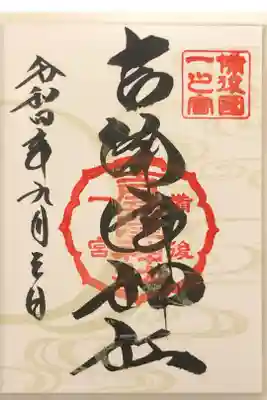 備後國
一之宮
吉備津神社
備後
一宮
令和四年九月三日